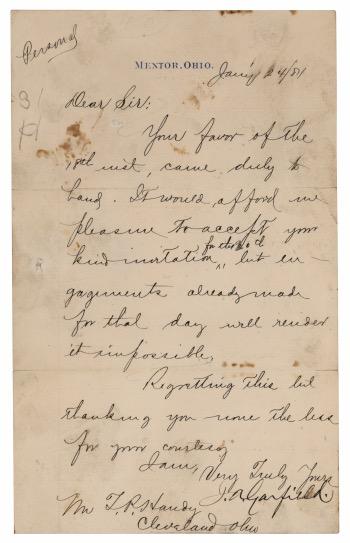 Personal
MENTOR, OHIO.
Jan'y 24/81
Dear Sir:
Your favor of the
18th inst, came duly to
hand. It would afford me
pleasure to accept your
kind invitation for the 20th, but en-
gagements already made
for that day will render
it impossible.
Regretting this but
thanking you none the less
for your courtesy
I am,
Very Truly Yours
J. A. Garfield.
Mr T. P. Handy
Cleveland Ohio